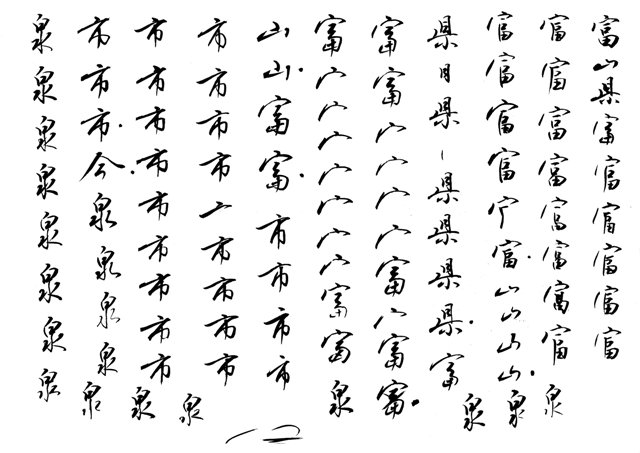 富山県富富富富富富
富富富富富富富富泉
富富富富宀富山山山山泉
県日県県県県県富泉
富富宀宀宀宀富富富
富宀宀宀宀宀宀宀富富泉
山山富富市市市市
市市市市亠市市市市泉
市市市市市市市市市泉
市市市泉泉泉泉泉
泉泉泉泉泉泉泉泉